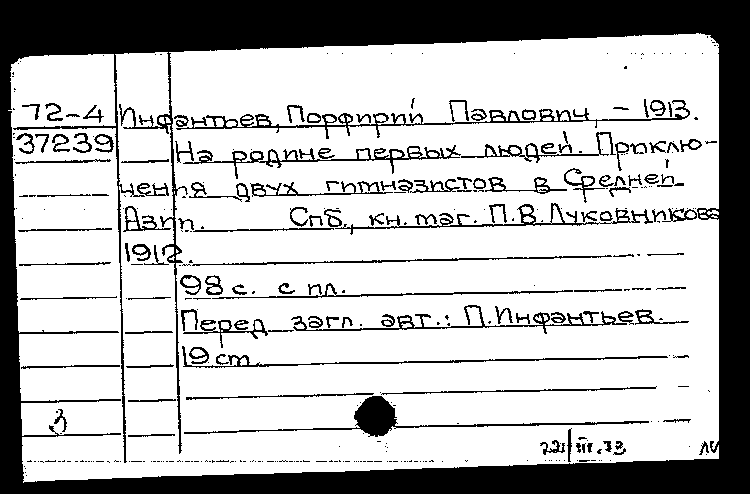 72-4 Инфантьев, Порфирий Павлович, - 1913.
37239 На родине первых людей. Приклю-
чения двух гимназистов в Средней
Азии. Спб., кн. маг. П.В. Луковникова
1912.
98 с. с ил.
Перед загл. авт.: П. Инфантьев.
19 см.
3
221/III.73